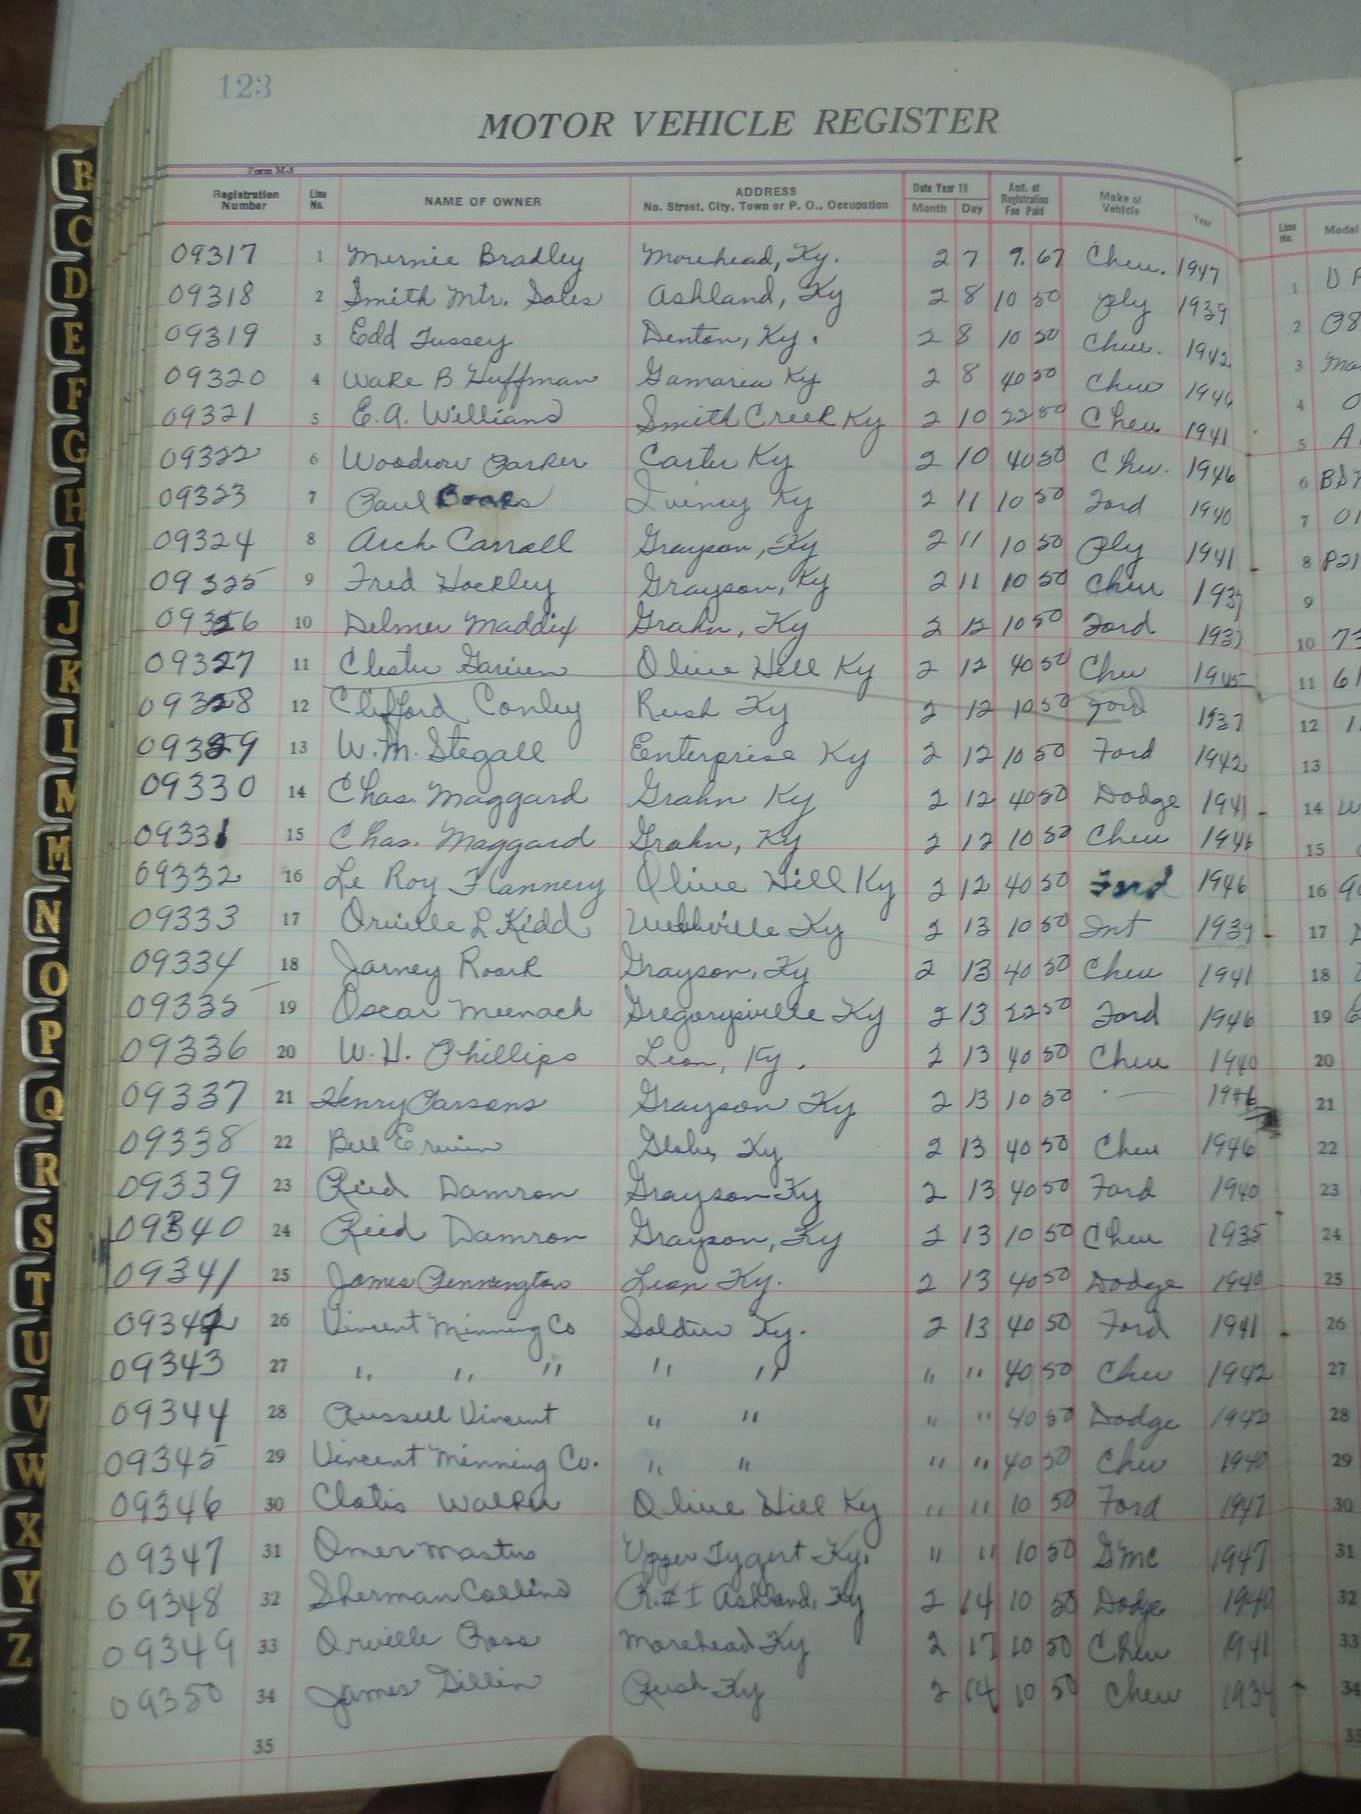 123
MOTOR VEHICLE REGISTER
Form M-5
Registration Number Line No. NAME OF OWNER ADDRESS No. Street, City, Town or P. O., Occupation Date Year 19 Month Day Amt. of Registration Fee Paid Make of Vehicle Year Line No. Model
09317 1 Mernie Bradley Morehead, Ky. 2 7 9.67 Chev. 1947 1
09318 2 Smith Mtr. Sales Ashland, Ky 2 8 10 50 Ply 1939 2
09319 3 Edd Tussey Denton, Ky. 2 8 10 50 Chev. 1942 3
09320 4 B Huffman Ky 2 8 40 50 Chev 1946 4
09321 5 E.A. Williams Smith Creek Ky 2 10 22 50 Chev 1941 5
09322 6 Woodrow Parker Carter Ky 2 10 40 50 Chev. 1946 6
09323 7 Paul Ky 2 11 10 50 Ford 1940 7
09324 8 Arch Carroll Grayson, Ky 2 11 10 50 Ply 1941 8
09325 9 Fred Hockley Grayson, Ky 2 11 10 50 Chev 9
09326 10 Delmer Maddix Grahn, Ky 2 12 10 50 Ford 1937 10
09327 11 Chester Olive Hill Ky 2 12 40 50 Chev 1945 11
09328 12 Clifford Conley Rush Ky 2 12 10 50 Ford 1937 12
09329 13 W.M. Stegall Enterprise Ky 2 12 10 50 Ford 1942 13
09330 14 Chas. Maggard Grahn Ky 2 12 40 50 Dodge 1941 14
09331 15 Chas. Maggard Grahn, Ky 2 12 10 50 Chev 1946 15
09332 16 Le Roy Flannery Olive Hill Ky 2 12 40 50 Ford 1946 16
09333 17 Orville L Kidd Webbville Ky 2 13 10 50 Int 1939 17
09334 18 Jarney Roark Grayson, Ky 2 13 40 50 Chev 1941 18
09335 19 Oscar Meenach Gregorysville Ky 2 13 22 50 Ford 1946 19
09336 20 W.H. Phillips Leon, Ky. 2 13 40 50 Chev 1940 20
09337 21 Henry Parsons Grayson Ky 2 13 10 50 1946 21
09338 22 Bill Erwin Globe, Ky 2 13 40 50 Chev 1946 22
09339 23 Reid Damron Grayson Ky 2 13 40 50 Ford 1940 23
09340 24 Reid Damron Grayson, Ky 2 13 10 50 Chev 1935 24
09341 25 James Pennington Leon Ky. 2 13 40 50 Dodge 1940 25
09342 26 Vincent Minning Co Soldier Ky. 2 13 40 50 Ford 1941 26
09343 27 " " " " " " " 40 50 Chev 1942 27
09344 28 Russell Vincent " " " " 40 50 Dodge 1942 28
09345 29 Vincent Minning Co. " " " " 40 50 Chev 1940 29
09346 30 Clatis Walker Olive Hill Ky " " 10 50 Ford 1947 30
09347 31 Omer Masters Upper Tygert Ky. " " 10 50 GMC 1947 31
09348 32 Sherman Collins R. # 1 Ashland, Ky 2 14 10 50 Dodge 1940 32
09349 33 Orville Ross Morehead Ky 2 17 10 50 Chev 1941 33
09350 34 James Gillin Rush Ky 2 14 10 50 Chev 34
35
B
C
D
E
F
G
H
I
J
K
L
M
M
N
O
P
Q
R
S
T
U
V
W
X
Y
Z